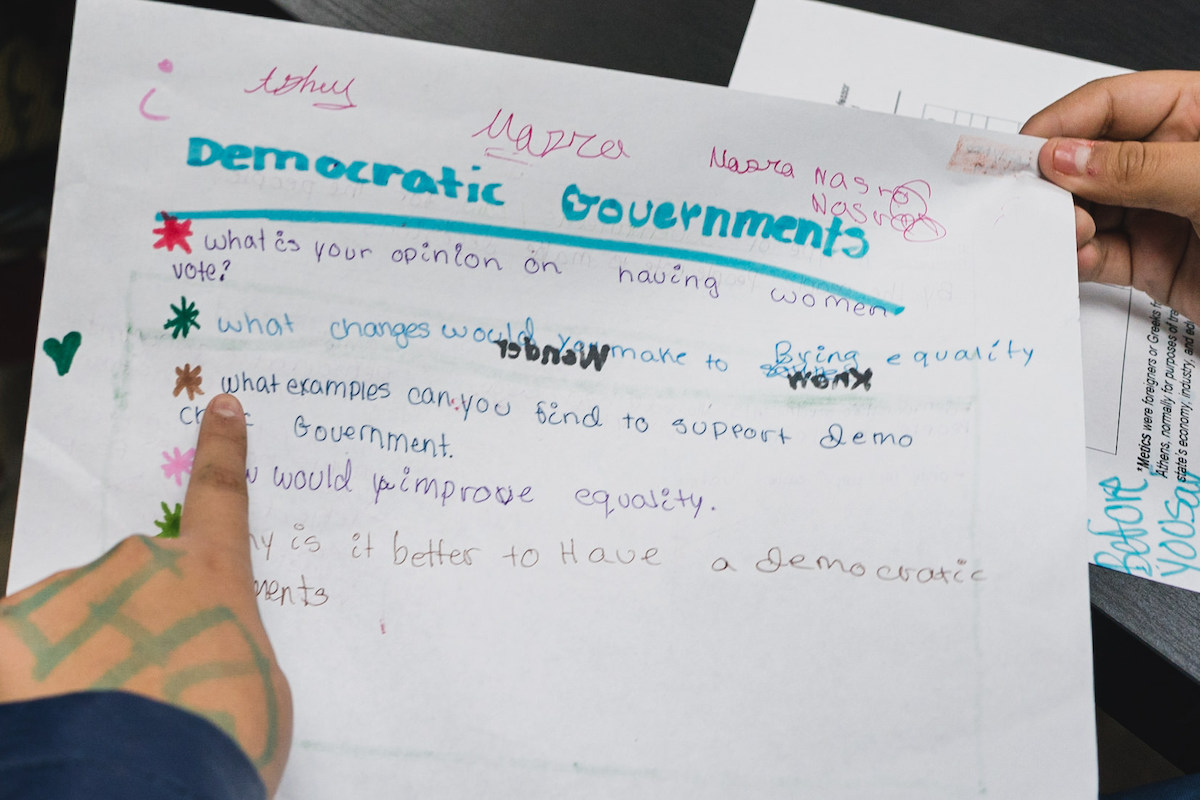 Nasra Nasra
Nasra
Democratic Governments
what is your opinion on having women
vote?
what changes would you make to Bring equality
Wonder
Know
what examples can you find to support demo
Government.
would improve equality.
is it better to Have a democratic
*Metics were foreigners or Greeks
Athens, normally for purposes of
state's economy, industry, and
Before